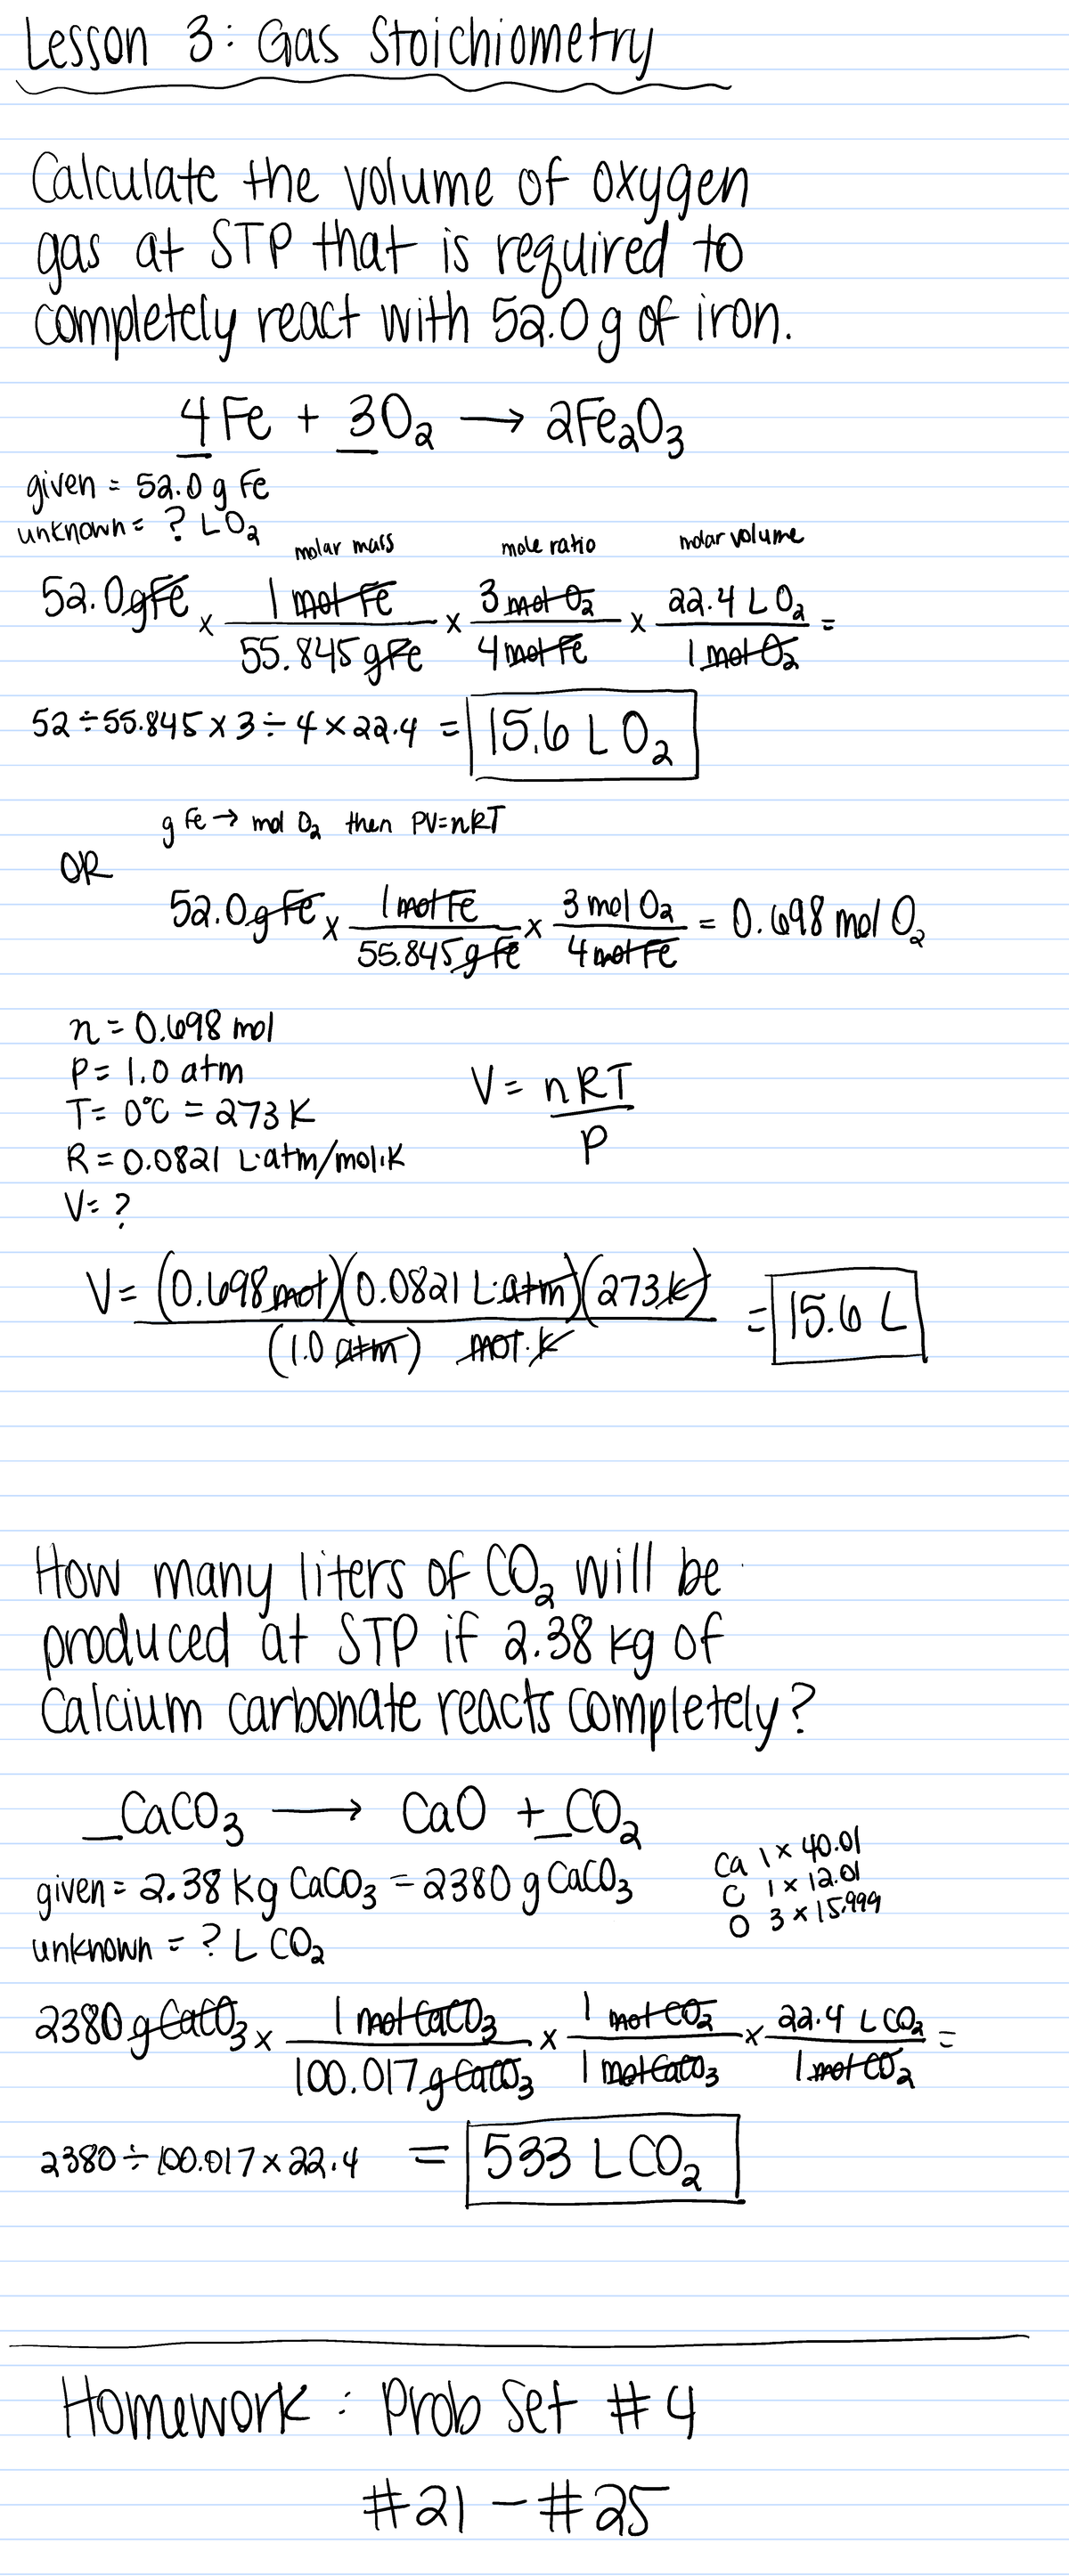 Lesson 3: Gas Stoichiometry
Calculate the volume of oxygen
gas at STP that is required to
completely react with 52.0 g of iron.
4Fe + 3O₂ → 2Fe₂O₃
given = 52.0 g Fe
unknown = ? L O₂
molar mass mole ratio molar volume
52.0 g Fe × 1 mol Fe / 55.845 g Fe × 3 mol O₂ / 4 mol Fe × 22.4 L O₂ / 1 mol O₂ =
52 ÷ 55.845 × 3 ÷ 4 × 22.4 = 15.6 L O₂
g Fe → mol O₂ then PV=nRT
OR
52.0 g Fe × 1 mol Fe / 55.845 g Fe × 3 mol O₂ / 4 mol Fe = 0.698 mol O₂
n = 0.698 mol
P = 1.0 atm
T = 0°C = 273 K
R = 0.0821 L·atm/mol·K
V = ?
V = nRT / P
V = (0.698 mol)(0.0821 L·atm)(273 K) / (1.0 atm) mol·K = 15.6 L
How many liters of CO₂ will be
produced at STP if 2.38 kg of
Calcium carbonate reacts completely?
_CaCO₃ → CaO + _CO₂
given = 2.38 kg CaCO₃ = 2380 g CaCO₃
unknown = ? L CO₂
Ca 1 × 40.01
C 1 × 12.01
O 3 × 15.999
2380 g CaCO₃ × 1 mol CaCO₃ / 100.017 g CaCO₃ × 1 mol CO₂ / 1 mol CaCO₃ × 22.4 L CO₂ / 1 mol CO₂ =
2380 ÷ 100.017 × 22.4 = 533 L CO₂
Homework : Prob Set #4
#21 – #25